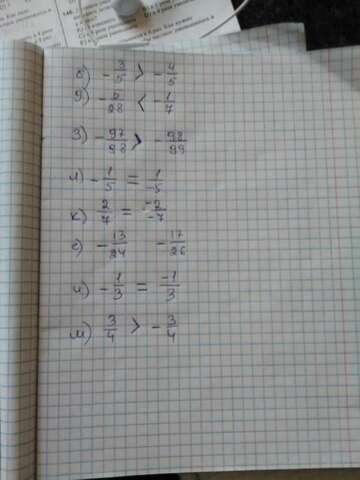 б) -3/5 > -4/5
д) -5/28 < -1/7
з) -97/98 > -98/99
л) -1/5 = 1/-5
к) 2/7 = -2/-7
е) -13/24 -17/26
и) -1/3 = -1/3
м) 3/4 > -3/4